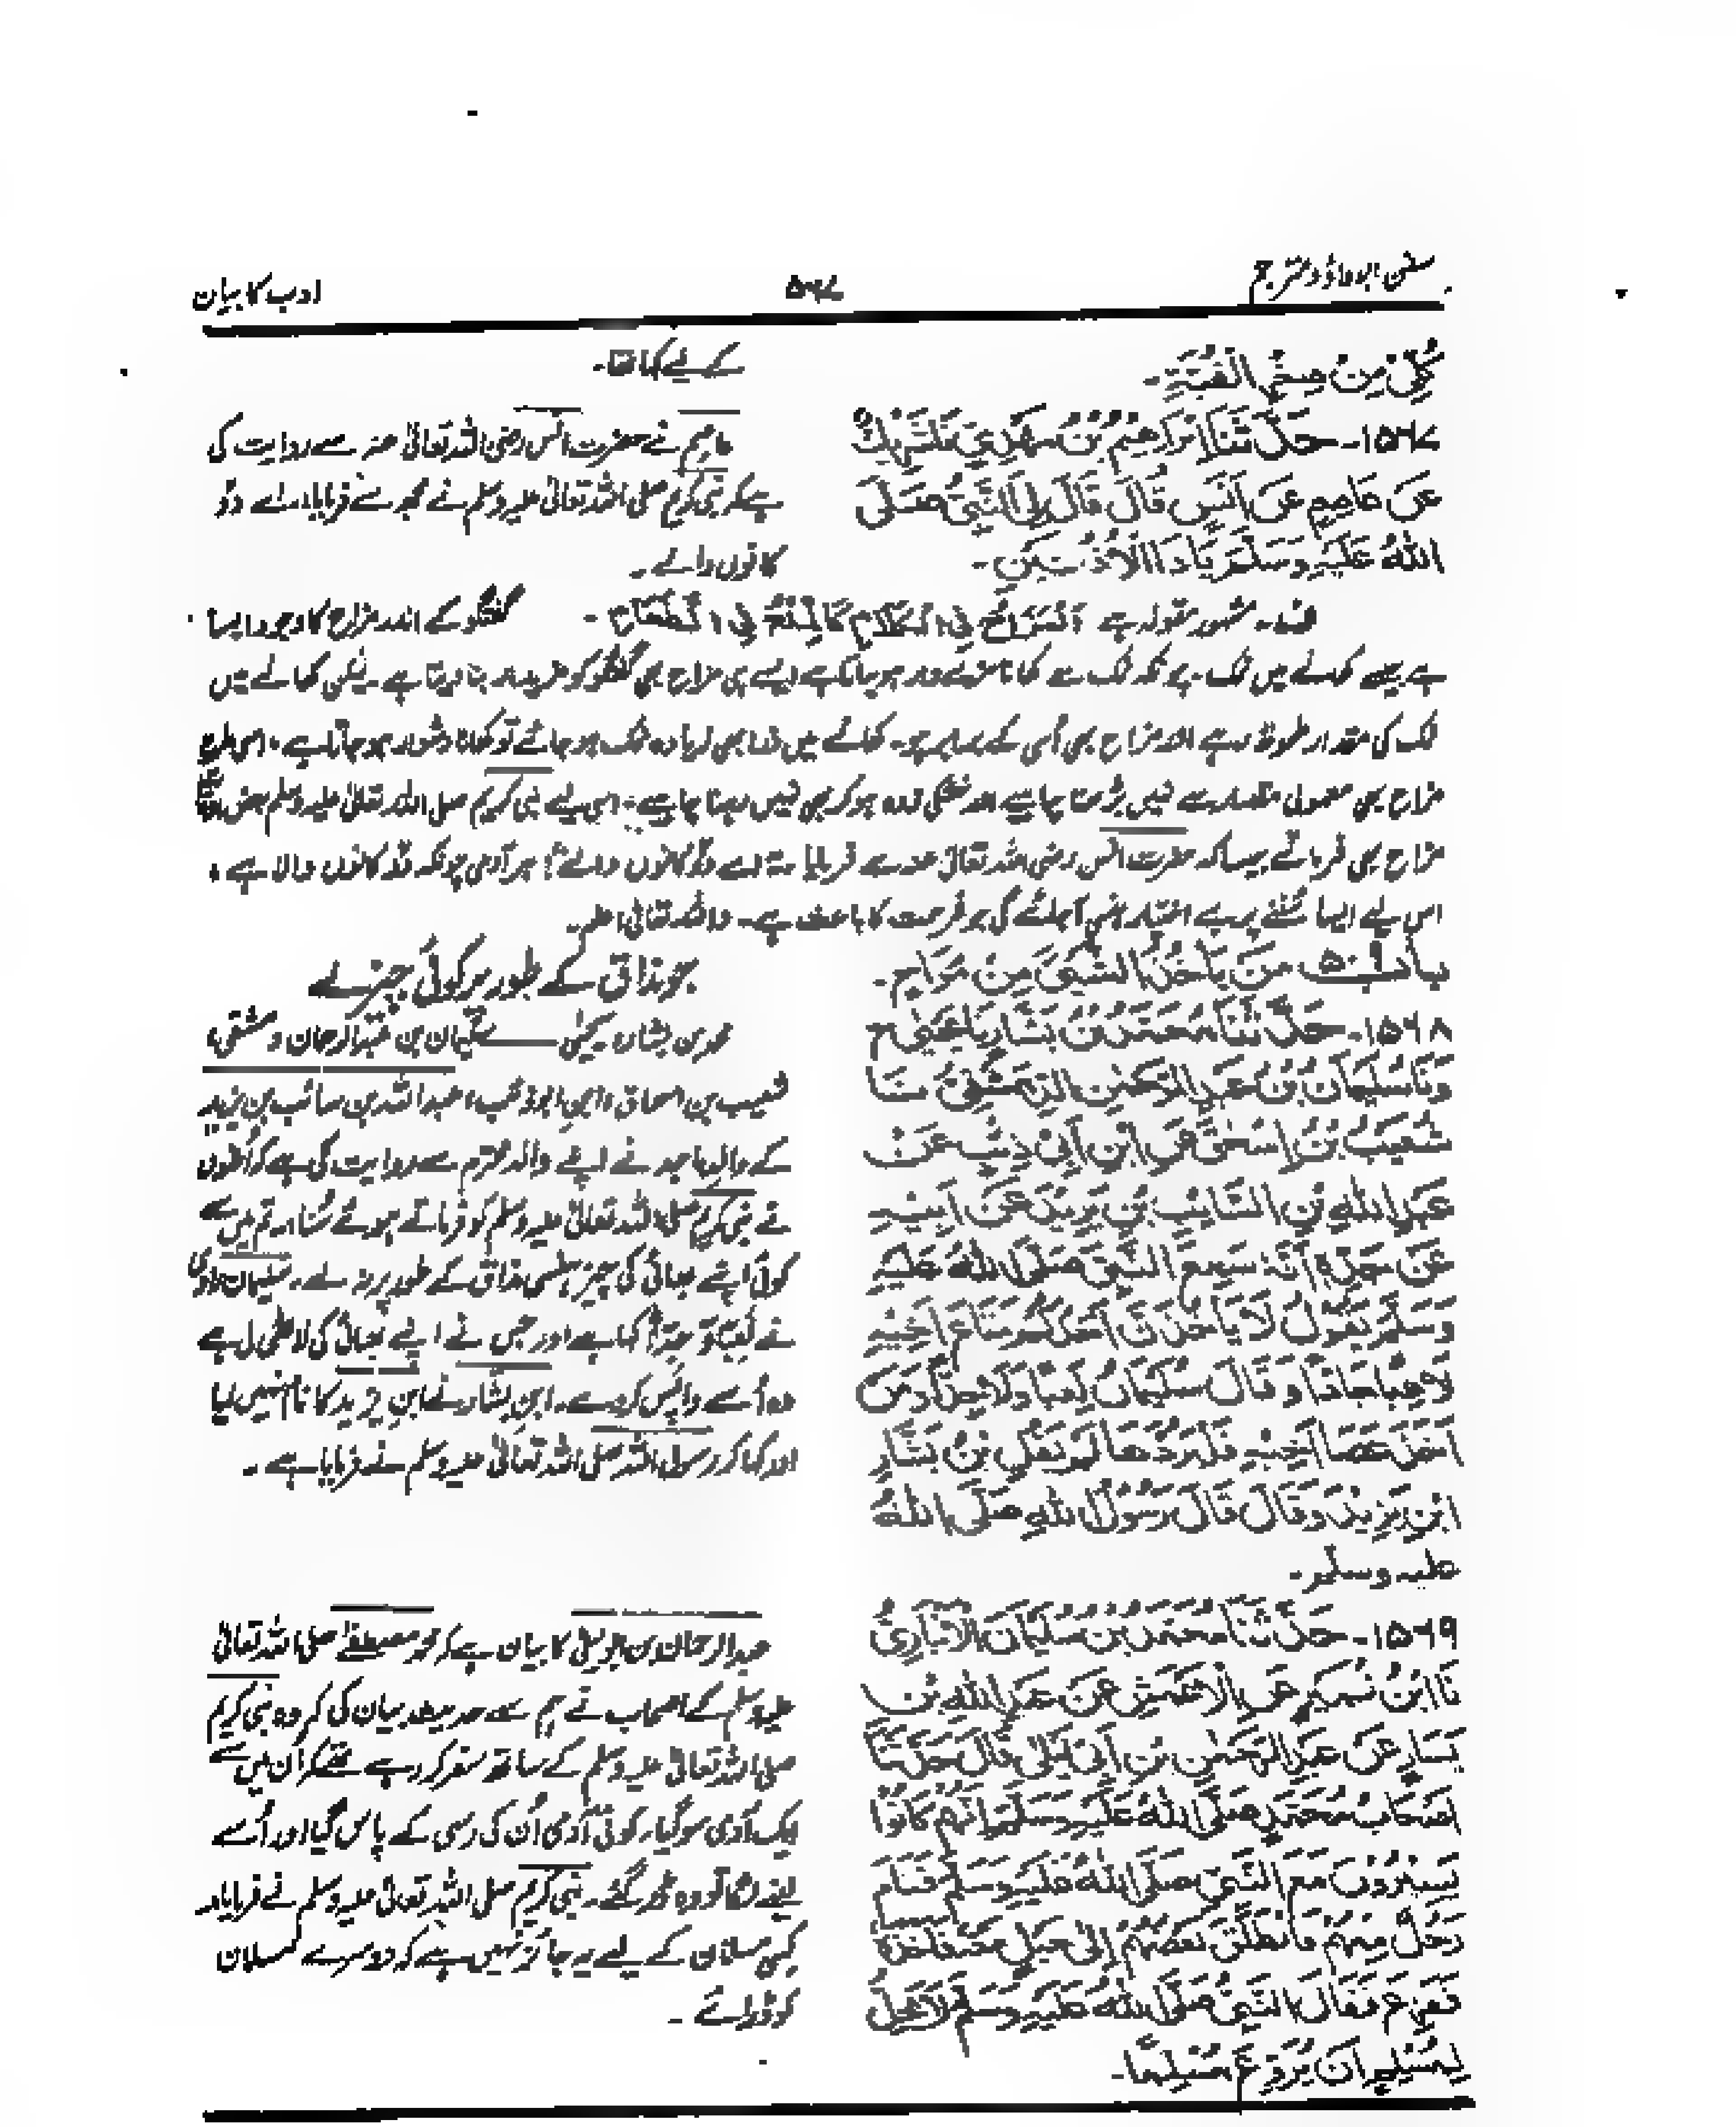 سنن ابوداؤد مترجم
۵۶۷
ادب کا بیان
كُلِّىْ مِنْ صِغَرِ الْقُبَّةِ۔
کے لیے کہا تھا۔
۱۵۶۷۔ حَدَّثَنَا اِبْرَاهِيْمُ بْنُ مَهْدِيٍّ نَا شَرِيْكٌ
عَنْ عَاصِمٍ عَنْ اَنَسٍ قَالَ قَالَ لِىَ النَّبِىُّ صَلَّى
اللهُ عَلَيْهِ وَسَلَّمَ يَا ذَا الْاُذُنَيْنِ۔
عاصم نے حضرت انس رضی اللہ تعالیٰ عنہ سے روایت کی
ہے کہ نبی کریم صلی اللہ تعالیٰ علیہ وسلم نے مجھ سے فرمایا: اے دو
کانوں والے۔
ف۔ مشہور مقولہ ہے اَلْمِزَاحُ فِى الْكَلَامِ كَالْمِلْحِ فِى الطَّعَامِ۔ گفتگو کے اندر مزاح کا وجود ایسا
ہے جیسے کھانے میں نمک۔ چونکہ نمک سے کھانا مزے دار ہو جاتا ہے ایسے ہی مزاح بھی گفتگو کو مزیدار بنا دیتا ہے۔ لیکن کھانے میں
نمک کی مقدار ملحوظ رہے اور مزاح بھی اسی کے برابر ہو۔ کھانے میں ذرا بھی زیادہ نمک ہو جائے تو کھانا دشوار ہو جاتا ہے۔ اسی طرح
مزاح بھی معمولی مقدار سے نہیں بڑھنا چاہیے اور خشکی زدہ ہو کر بھی نہیں رہنا چاہیے۔ اسی لیے نبی کریم صلی اللہ تعالیٰ علیہ وسلم بعض
مزاح بھی فرماتے جیسا کہ حضرت انس رضی اللہ تعالیٰ عنہ سے فرمایا: اے دو کانوں والے! ہر آدمی چونکہ دو کانوں والا ہے،
اس لیے ایسا سننے پر بے اختیار ہنسی آ جائے گی جو فرحت کا باعث ہے۔ واللہ تعالیٰ اعلم۔
بَابُ ۵۰۹ مَنْ يَّاْخُذُ الشَّىْءَ مِنْ مِزَاحٍ۔
جو مذاق کے طور پر کوئی چیز لے
۱۵۶۸۔ حَدَّثَنَا مُحَمَّدُ بْنُ بَشَّارٍ نَا يَحْيٰى ح
وَنَا سُلَيْمَانُ بْنُ عَبْدِ الرَّحْمٰنِ الدِّمَشْقِىُّ نَا
شُعَيْبُ بْنُ اِسْحٰقَ عَنِ ابْنِ اَبِىْ ذِئْبٍ عَنْ
عَبْدِ اللهِ بْنِ السَّائِبِ بْنِ يَزِيْدَ عَنْ اَبِيْهِ
عَنْ جَدِّهٖ اَنَّهٗ سَمِعَ النَّبِىَّ صَلَّى اللهُ عَلَيْهِ
وَسَلَّمَ يَقُوْلُ لَا يَاْخُذَنَّ اَحَدُكُمْ مَتَاعَ اَخِيْهِ
لَاعِبًا جَادًّا وَقَالَ سُلَيْمَانُ لَعِبًا وَلَا جِدًّا وَمَنْ
اَخَذَ عَصَا اَخِيْهِ فَلْيَرُدَّهَا لَمْ يَقُلِ بْنُ بَشَّارٍ
ابْنِ يَزِيْدَ وَقَالَ قَالَ رَسُوْلُ اللهِ صَلَّى اللهُ
عليه وسلم۔
محمد بن بشار، یحییٰ ــــ سلیمان بن عبدالرحمان دمشقی،
شعیب بن اسحاق، ابن ابوذئب، عبداللہ بن سائب بن یزید
کے والد ماجد نے اپنے والد محترم سے روایت کی ہے کہ انھوں
نے نبی کریم صلی اللہ تعالیٰ علیہ وسلم کو فرماتے ہوئے سُنا: تم میں سے
کوئی اپنے بھائی کی چیز ہنسی مذاق کے طور پر نہ لے۔ سلیمان راوی
نے لَعِبًا وَّ جِدًّا کہا ہے اور جس نے اپنے بھائی کی لاٹھی لی ہے
وہ اُسے واپس کر دے۔ ابن بشار نے ابن یزید کا نام نہیں لیا
اور کہا کہ رسول اللہ صلی اللہ تعالیٰ علیہ وسلم نے فرمایا ہے۔
۱۵۶۹۔ حَدَّثَنَا مُحَمَّدُ بْنُ سُلَيْمَانَ الْاَنْبَارِىُّ
نَا ابْنُ نُمَيْرٍ عَنِ الْاَعْمَشِ عَنْ عَبْدِ اللهِ بْنِ
يَسَارٍ عَنْ عَبْدِ الرَّحْمٰنِ بْنِ اَبِىْ لَيْلٰى قَالَ حَدَّثَنَا
اَصْحَابُ مُحَمَّدٍ صَلَّى اللهُ عَلَيْهِ وَسَلَّمَ اَنَّهُمْ كَانُوْا
يَسِيْرُوْنَ مَعَ النَّبِىِّ صَلَّى اللهُ عَلَيْهِ وَسَلَّمَ فَنَامَ
رَجُلٌ مِنْهُمْ فَانْطَلَقَ بَعْضُهُمْ اِلٰى حَبْلٍ مَعَهٗ فَاَخَذَهٗ
فَفَزِعَ فَقَالَ النَّبِىُّ صَلَّى اللهُ عَلَيْهِ وَسَلَّمَ لَا يَحِلُّ
لِمُسْلِمٍ اَنْ يُّرَوِّعَ مُسْلِمًا۔
عبدالرحمان بن ابولیلیٰ کا بیان ہے کہ محمد مصطفےٰ صلی اللہ تعالیٰ
علیہ وسلم کے اصحاب نے ہم سے حدیث بیان کی کہ وہ نبی کریم
صلی اللہ تعالیٰ علیہ وسلم کے ساتھ سفر کر رہے تھے کہ اُن میں سے
ایک آدمی سو گیا۔ کوئی آدمی اُن کی رسی کے پاس گیا اور اُسے
لینے لگا تو وہ ڈر گئے۔ نبی کریم صلی اللہ تعالیٰ علیہ وسلم نے فرمایا:
کسی مسلمان کے لیے یہ جائز نہیں ہے کہ دوسرے مسلمان
کو ڈرائے۔